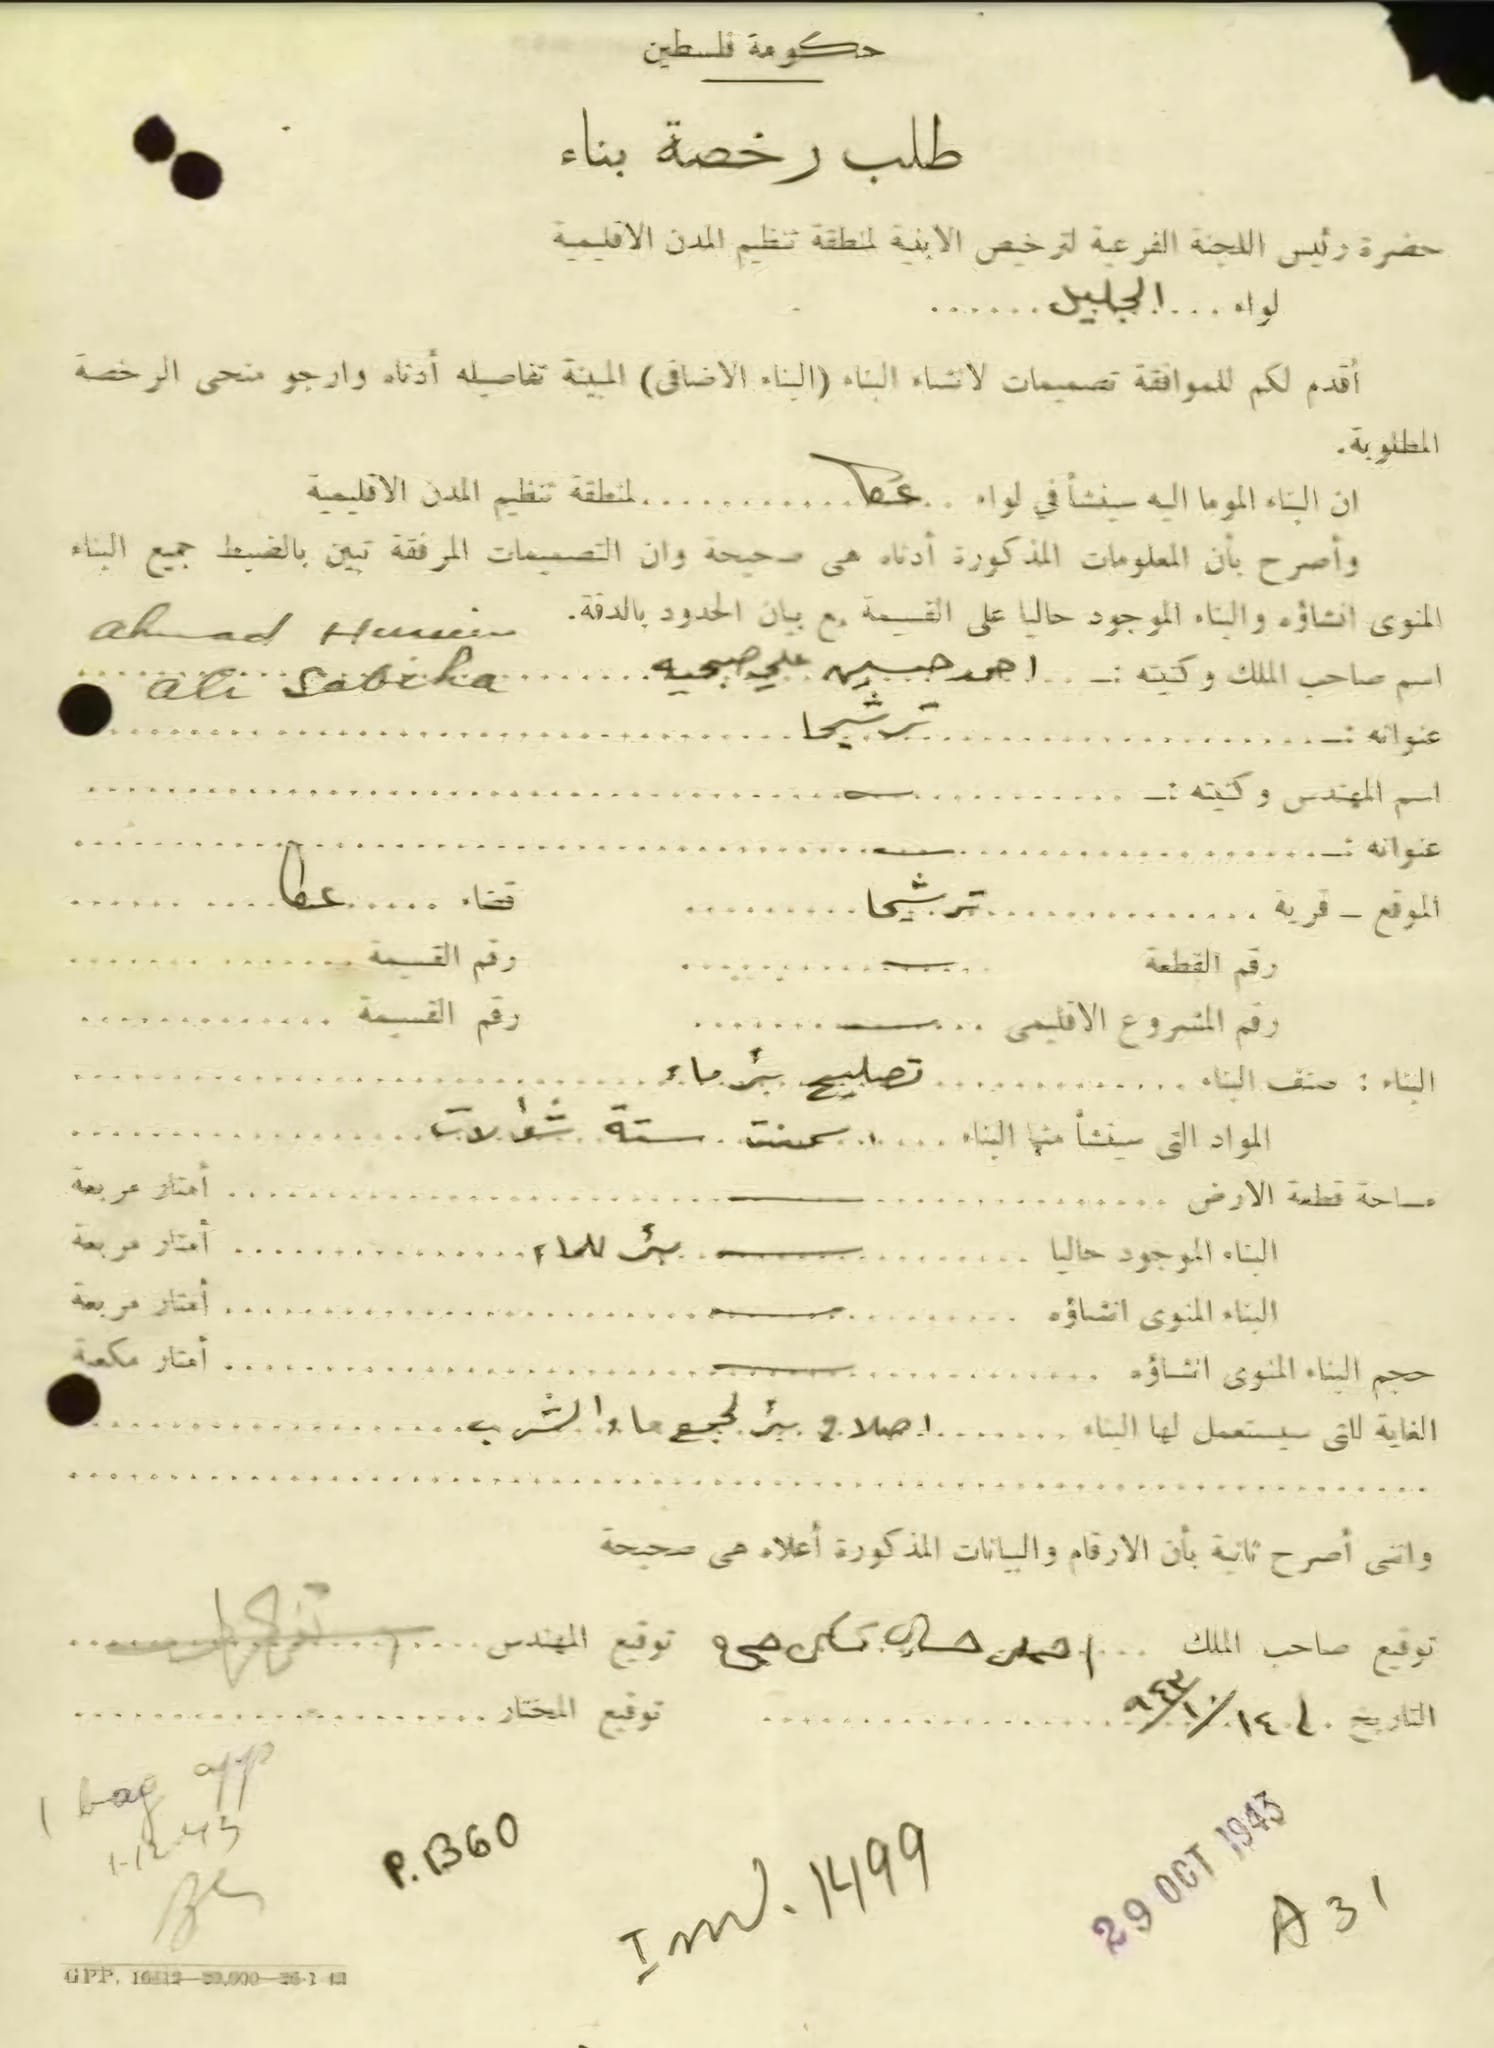 حكومة فلسطين
طلب رخصة بناء
حضرة رئيس اللجنة الفرعية لترخيص الابنية لمنطقة تنظيم المدن الاقليمية
لواء ... الجليل ......
أقدم لكم للموافقة تصميمات لانشاء البناء (البناء الاضافى) المبينة تفاصيله أدناه وارجو منحى الرخصة
المطلوبة.
ان البناء الموما اليه سينشأ في لواء .. عكا ............ لمنطقة تنظيم المدن الاقليمية
وأصرح بأن المعلومات المذكورة أدناه هى صحيحة وان التصميمات المرفقة تبين بالضبط جميع البناء
المنوى انشاؤه والبناء الموجود حاليا على القسيمة مع بيان الحدود بالدقة.
Ahmad Hussein
اسم صاحب الملك وكنيته :— احمد حسين علي صبحيه
Ali Sabiha
عنوانه :— ترشيحا
اسم المهندس وكنيته :— —
عنوانه :— —
الموقع — قرية ترشيحا قضاء عكا
رقم القطعة — رقم القسيمة
رقم المشروع الاقليمى — رقم القسيمة
البناء : صنف البناء تصليح بئر ماء
المواد التى سينشأ منها البناء سمنت ستة شوالات
مساحة قطعة الارض — أمتار مربعة
البناء الموجود حاليا — بئر للماء أمتار مربعة
البناء المنوى انشاؤه — أمتار مربعة
حجم البناء المنوى انشاؤه — أمتار مكعبة
الغاية للتى سيستعمل لها البناء اصلاح بئر لجمع ماء الشرب
واننى أصرح ثانية بأن الارقام والبيانات المذكورة أعلاه هى صحيحة
توقيع صاحب الملك احمد حسين علي صبحيه توقيع المهندس
التاريخ ١٤/١٠/٩٤٣ توقيع المختار
1 bag app
1-12-43
P.B60
Inv. 1499
29 OCT 1943
A 31
GPP.